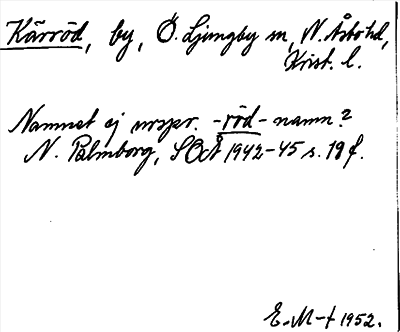 Kärröd, by, Ö. Ljungby sn, N. Åsbo hd,
Krist. l.
Namnet ej urspr. -röd- namn?
N. Palmborg, SOÅ 1942-45 s. 19 f.
E. M-t 1952.